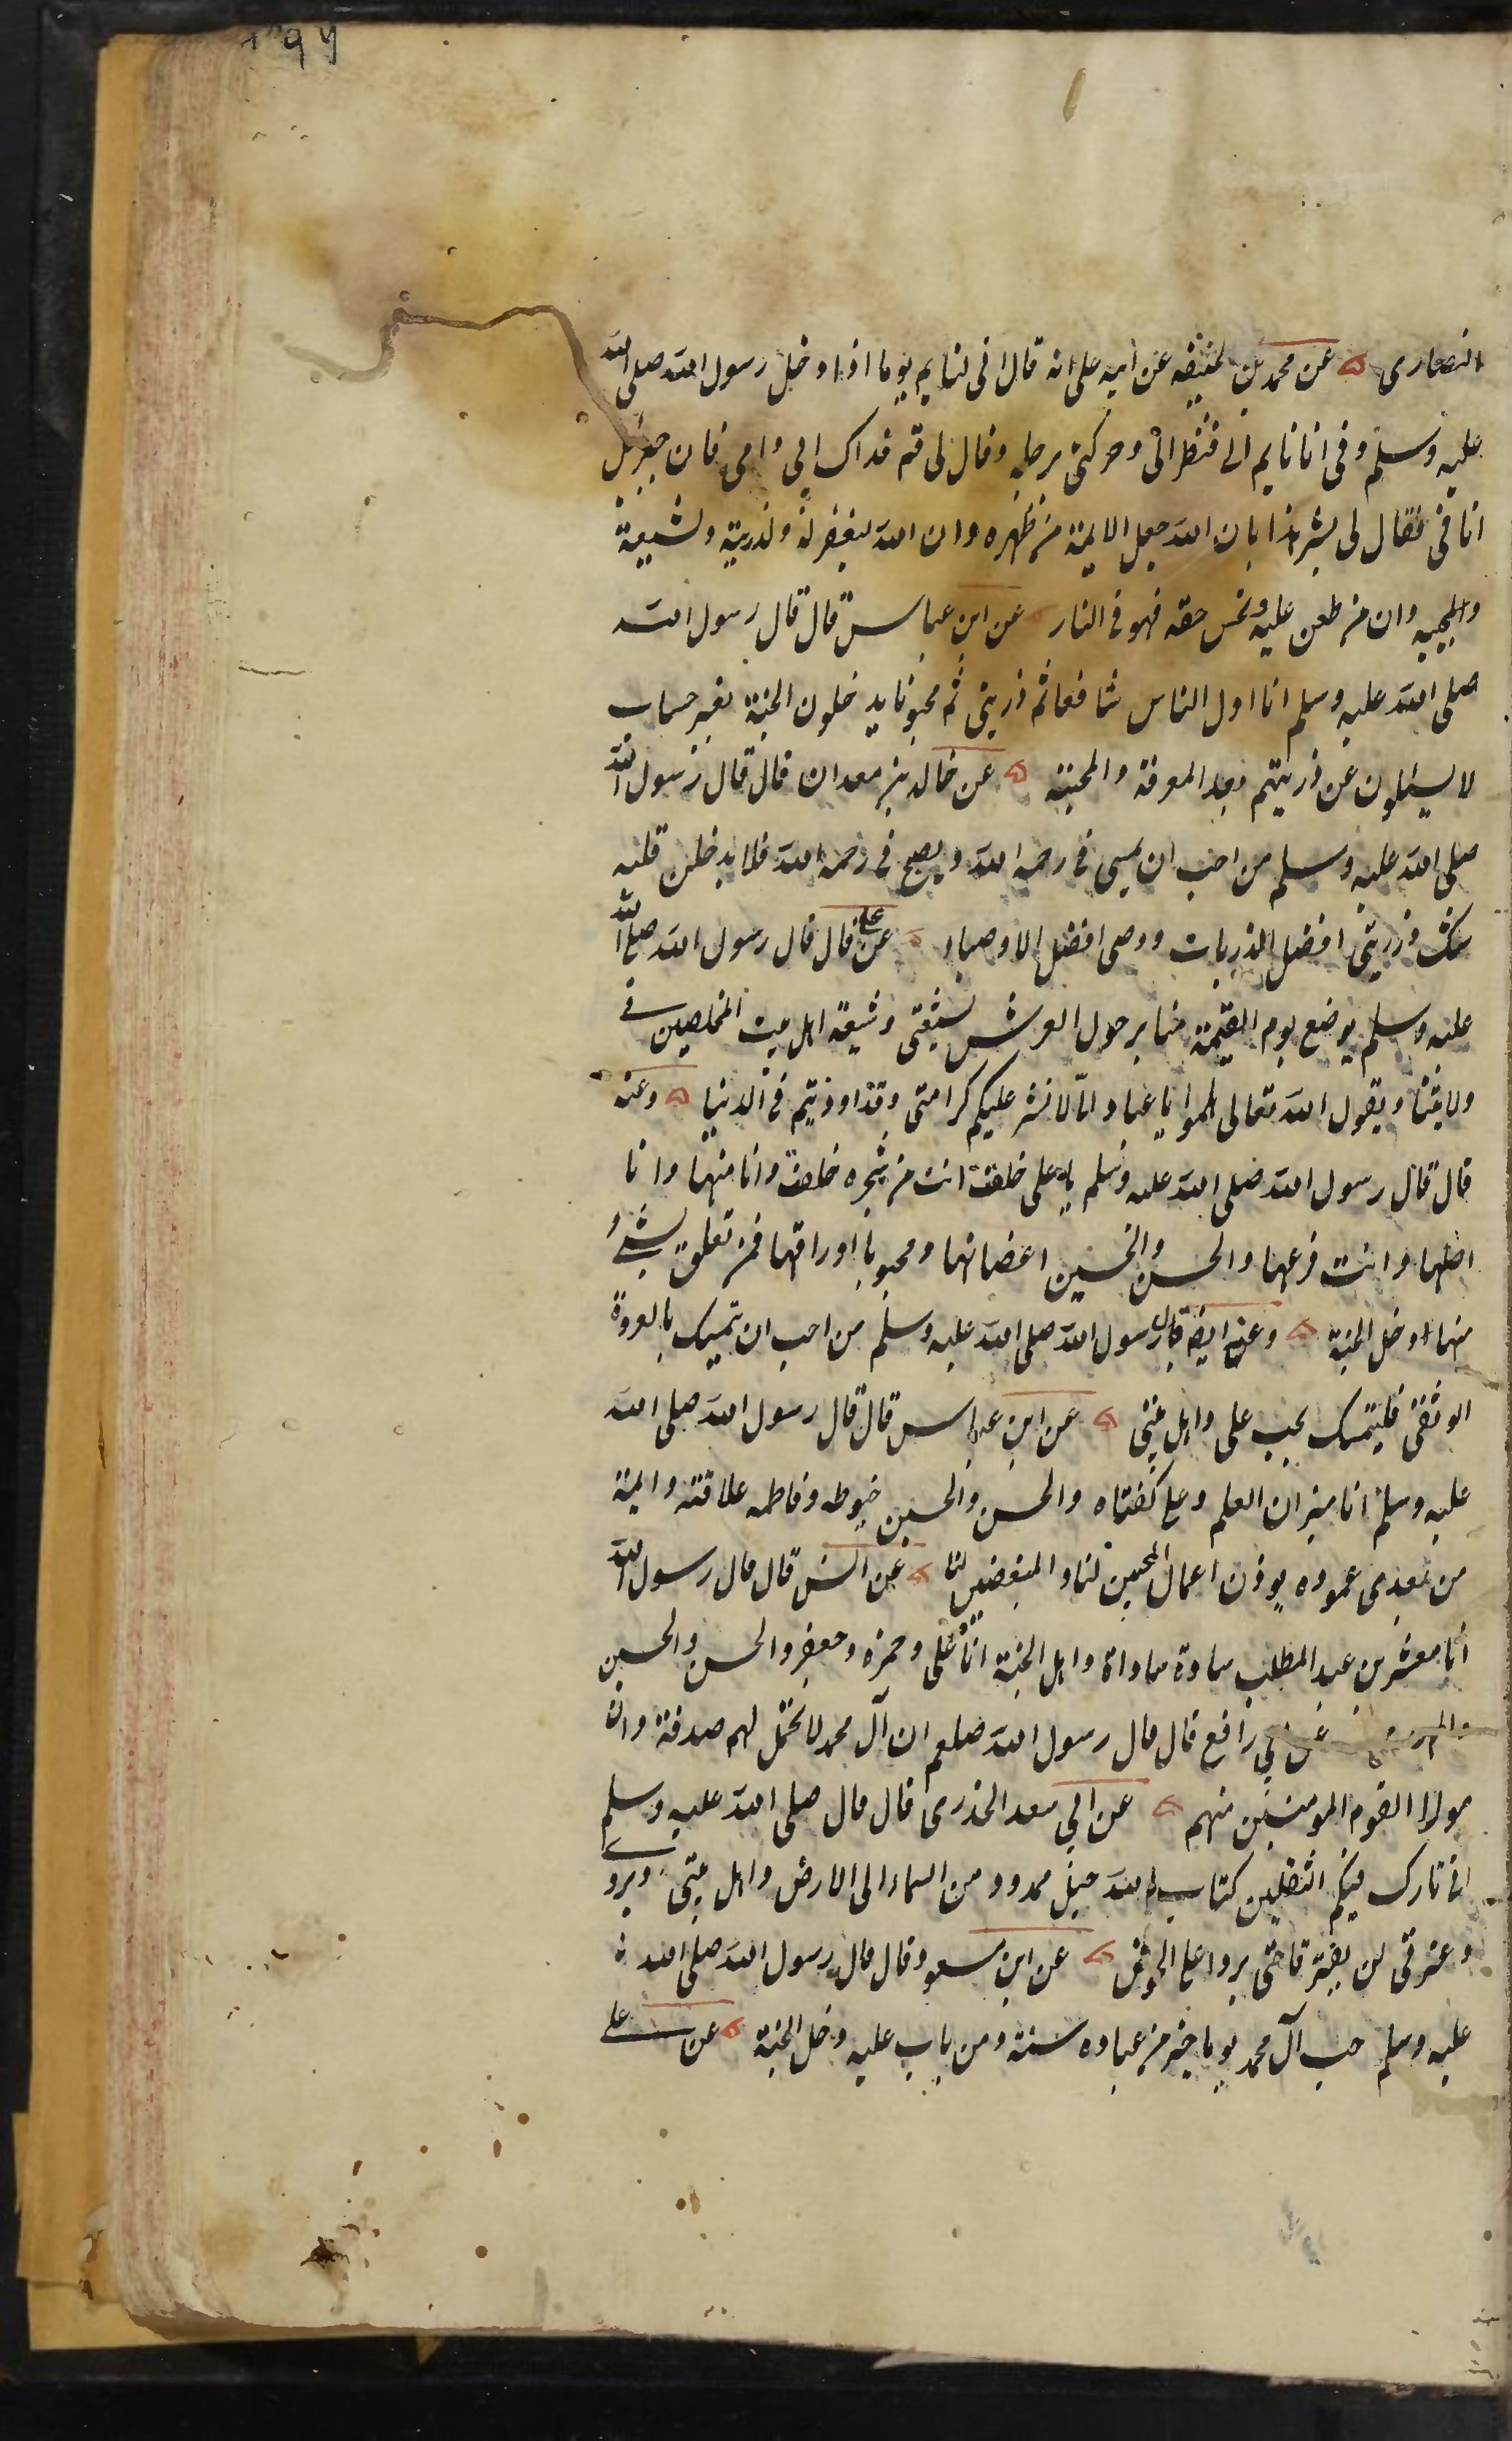 ٣٩٦
النصاری عن محمد بن الحنیفه عن ابیه علی انه قال انی لنایم یوما اذا دخل رسول الله صلی الله
علیه وسلم وفی انا نایم الی فنظر الیّ وحرکنی برجله وقال لی قم فداک ابی وامی فان جبرئیل
اتانی فقال لی بشر هذا بان الله جعل الایمة من ظهره وان الله لیغفر له ولذریته ولشیعته
ولمحبیه وان من طعن علیه وبخس حقه فهو فی النار عن ابن عباس قال قال رسول الله
صلی الله علیه وسلم انا اول الناس شافعا ثم ذریتی ثم محبونا یدخلون الجنة بغیر حساب
لا یسئلون عن ذریتهم بعد المعرفة والمحبة عن خالد بن معدان قال قال رسول الله
صلی الله علیه وسلم من احب ان یمسی فی رحمه الله ویصبح فی رحمه الله فلا یدخلن قلبه
شک ذریتی افضل الذریات ووصی افضل الاوصیاء عن علی قال قال رسول الله صلی الله
علیه وسلم یوضع یوم القیمة منابر حول العرش لشیعتی وشیعة اهل بیت المخلصین فی
ولایتنا ویقول الله تعالی هلموا یا عباد الله لا نشر علیکم کرامتی وقد اوذیتم فی الدنیا وعنه
قال قال رسول الله صلی الله علیه وسلم یا علی خلقت انت من شجره خلقت وانا منها وانا
اصلها وانت فرعها والحسن والحسین اعضانها ومحبونا اوراقها فمن تعلق بشیء
منها ادخل الجنة وعنه ایضا قال رسول الله صلی الله علیه وسلم من احب ان یتمسک بالعروة
الوثقی فلیتمسک بحب علی واهل بیتی عن ابن عباس قال قال رسول الله صلی الله
علیه وسلم انا میزان العلم وعلی کفتاه والحسن والحسین خیوطه وفاطمه علاقته والایمة
من بعدی عموده یوزن اعمال المحبین لنا والمبغضین لنا عن انس قال قال رسول الله
انا معشر من عبد المطلب سادة سادات واهل الجنة انا وعلی وحمزه وجعفر والحسن والحسین
والمهدی عن ابی رافع قال قال رسول الله صلعم ان آل محمد لا تحل لهم صدقة وان
مولا القوم المومنین منهم عن ابی سعد الخذری قال قال صلی الله علیه وسلم
انی تارک فیکم الثقلین کتاب الله حبل ممدود من السماء الی الارض واهل بیتی ویروی
وعترتی لن یفترقا حتی یردا علی الحوض عن ابن مسعود قال قال رسول الله صلی الله
علیه وسلم حب آل محمد یوما خیر من عباده سنة ومن مات علیه دخل الجنة عن علی